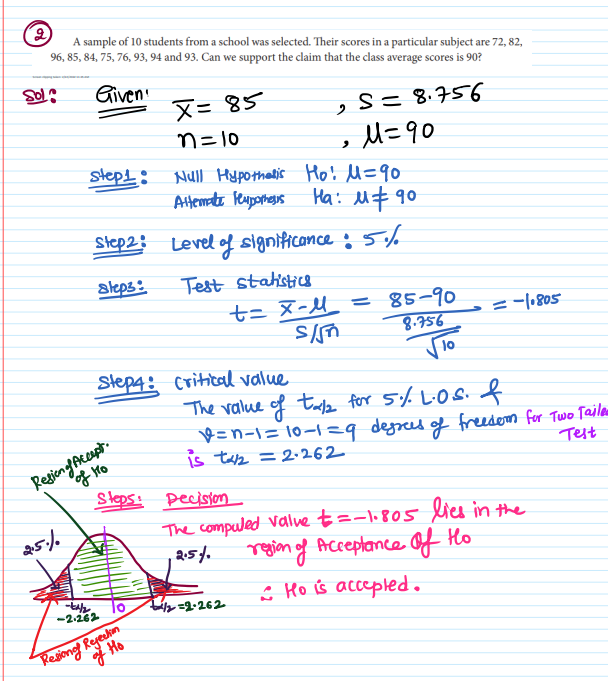 2
A sample of 10 students from a school was selected. Their scores in a particular subject are 72, 82,
96, 85, 84, 75, 76, 93, 94 and 93. Can we support the claim that the class average scores is 90?
Sol: Given: x̄ = 85 , S = 8.756
n = 10 , μ = 90
Step1: Null Hypothesis Ho: μ = 90
Alternate Hypothesis Ha: μ ≠ 90
Step2: Level of significance : 5%
Step3: Test statistics
t = x̄-μ / S/√n = 85-90 / 8.756/√10 = -1.805
Step4: Critical value
The value of tα/2 for 5% L.O.S. &
ν = n-1 = 10-1 = 9 degrees of freedom for Two Tailed
Test
is tα/2 = 2.262
Region of Accept.
of Ho
Step5: Decision
The computed value t = -1.805 lies in the
region of Acceptance of Ho
∴ Ho is accepted.
2.5% 2.5%
-tα/2 0 tα/2 = 2.262
-2.262
Region of Rejection
of Ho